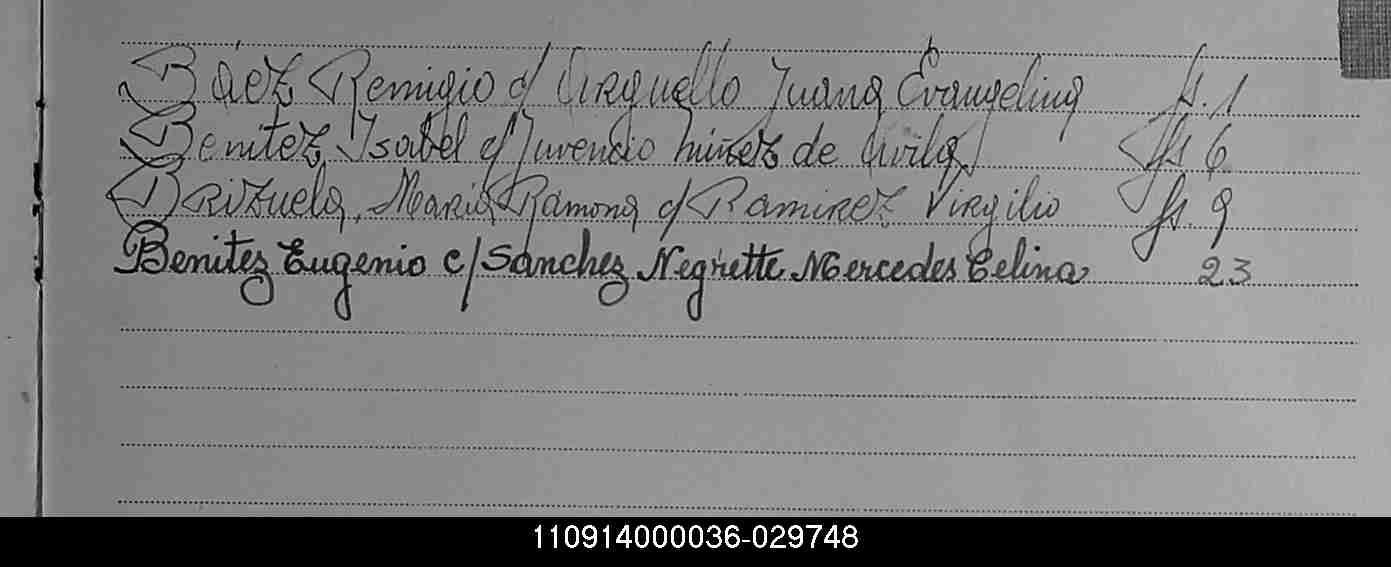 Báez Remigio c/ Arguello Juana Evangelina fs. 1
Benitez, Isabel c/ Juvencio Núñez de Avila fs 6
Brizuela, María Ramona c/ Ramirez Virgilio fs. 9
Benitez Eugenio c/ Sanchez Negrette Mercedes Celina 23
110914000036-029748